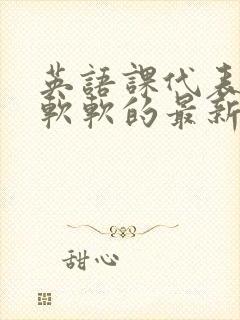 英語課代表
軟軟的最新
甜心